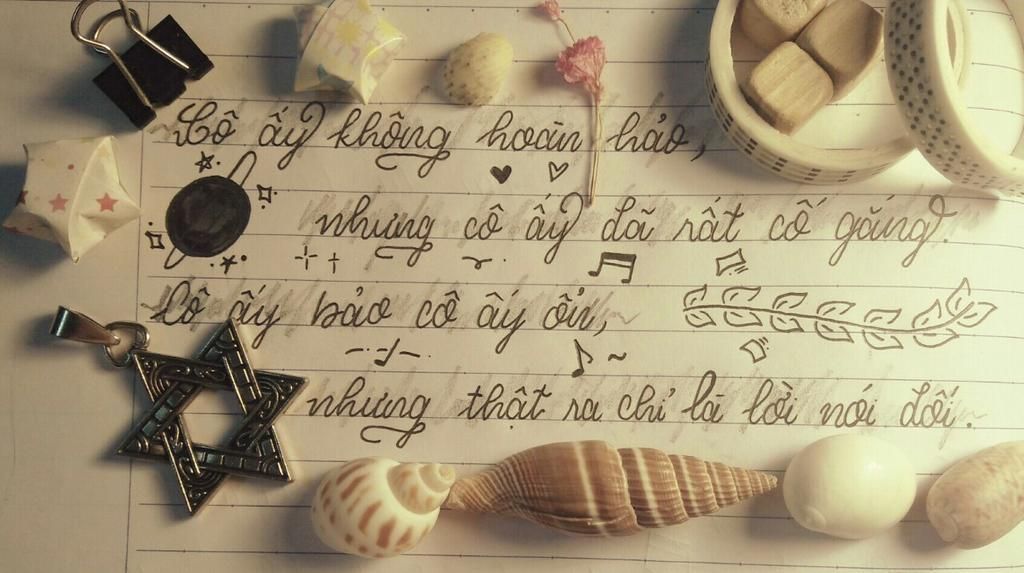 Cô ấy không hoàn hảo,
nhưng cô ấy đã rất cố gắng.
Cô ấy bảo cô ấy ổn,
nhưng thật ra chỉ là lời nói dối.